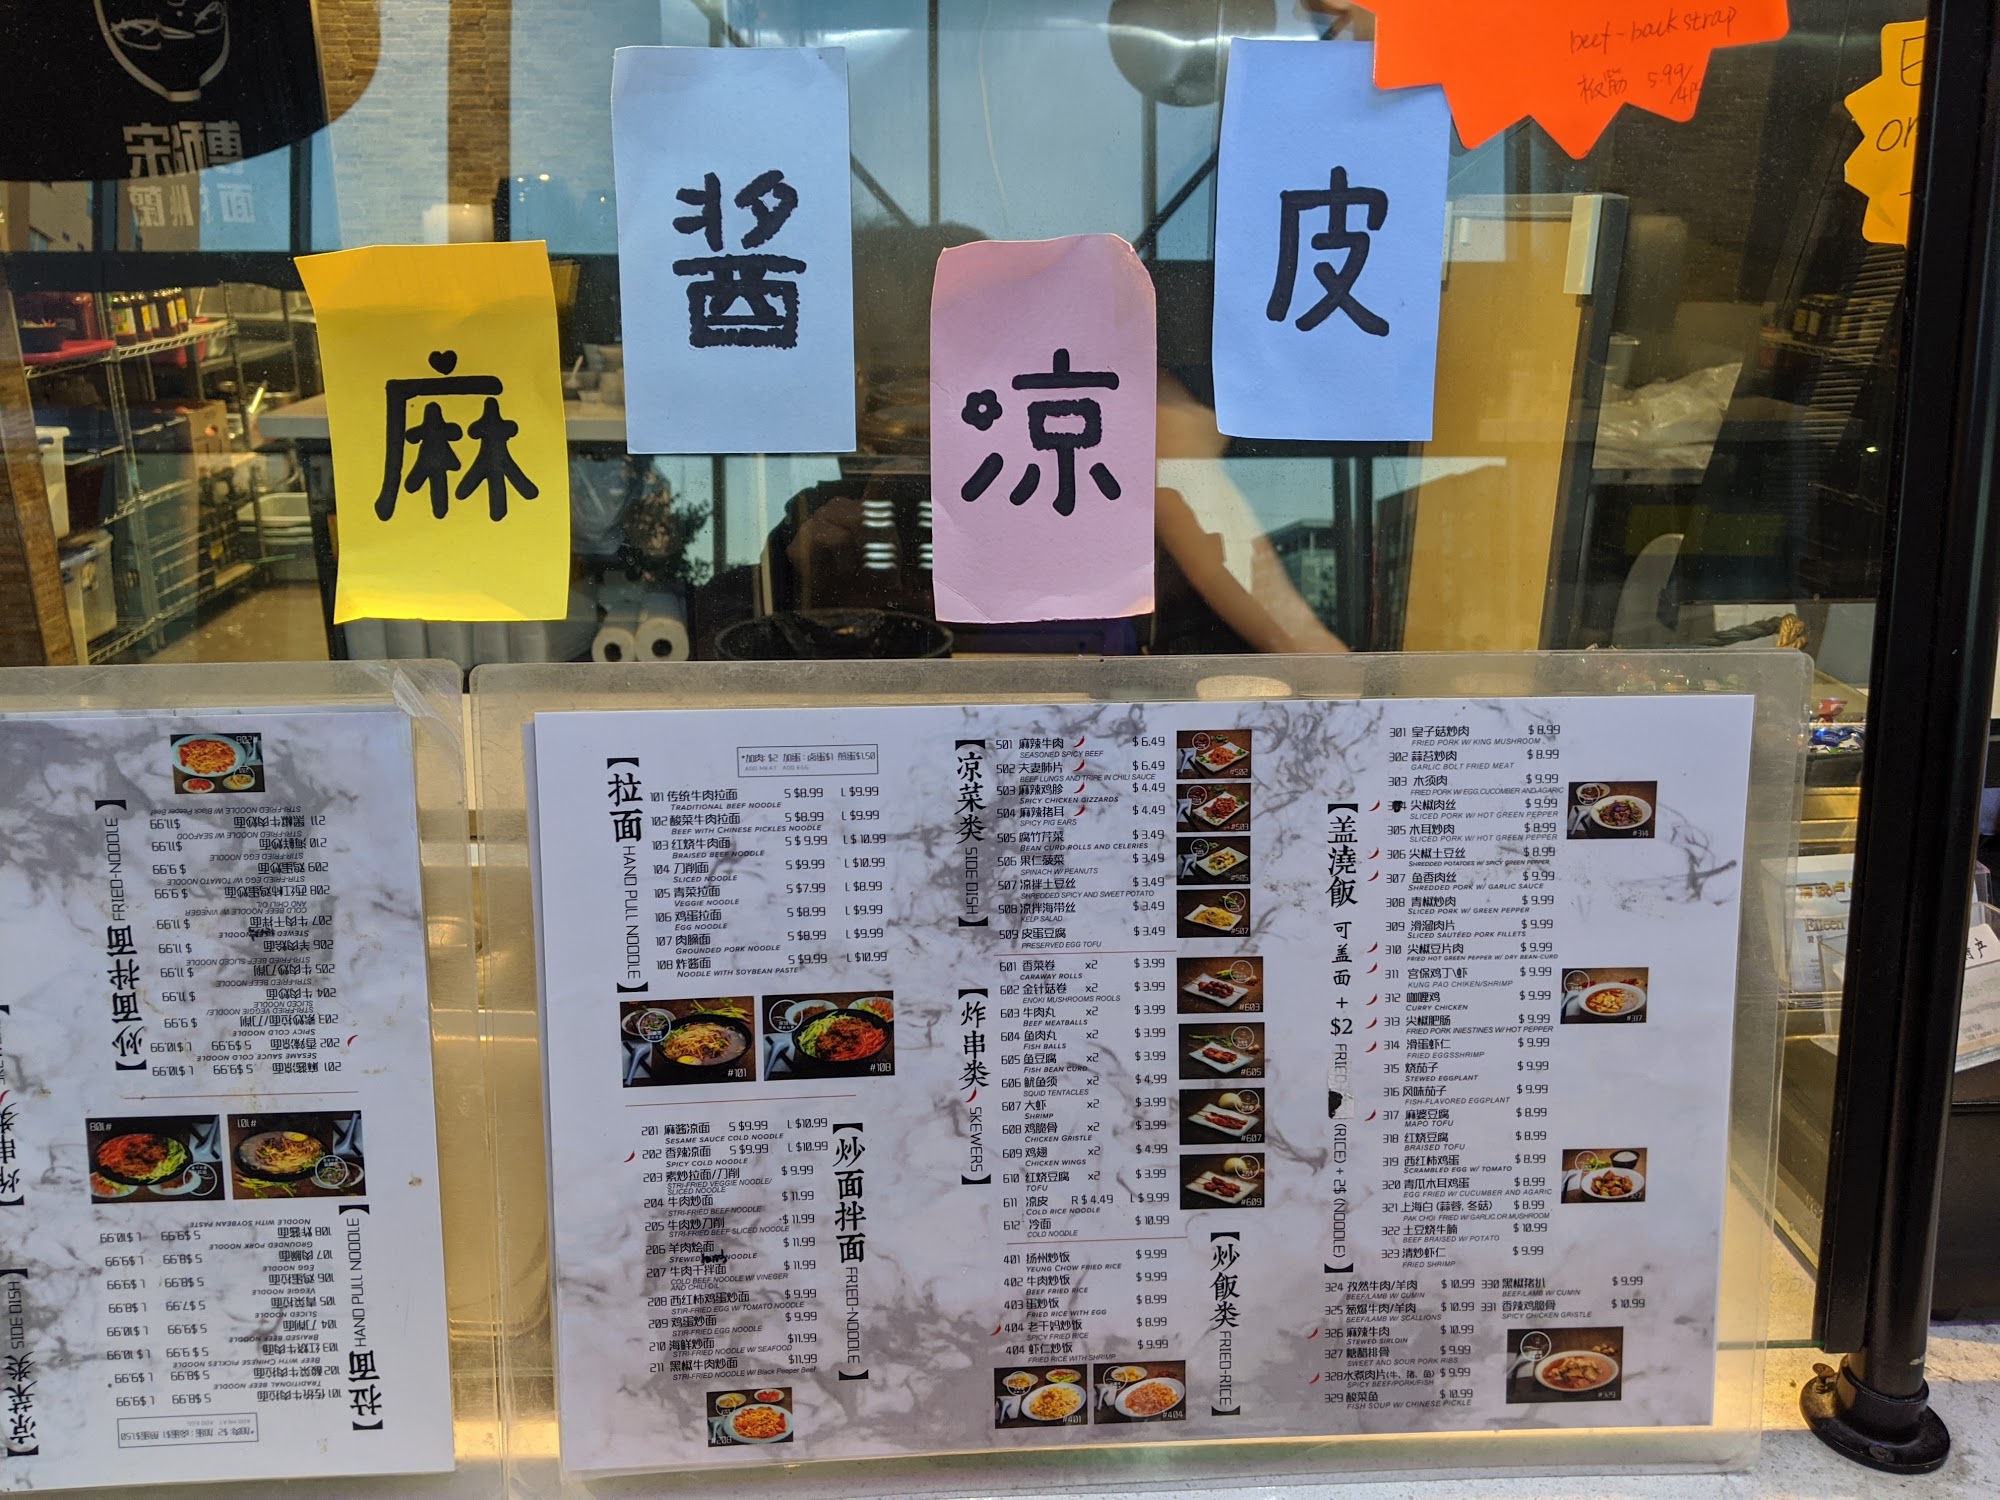 beef-back strap
板筋 5.99/
麻
酱
凉
皮
*加肉: $2 加蛋: 卤蛋$1 煎蛋$1.50
ADD MEAT ADD EGG
【拉面 HAND PULL NOODLE】
101 传统牛肉拉面 S $8.99 L $9.99
TRADITIONAL BEEF NOODLE
102 酸菜牛肉拉面 S $8.99 L $9.99
BEEF WITH CHINESE PICKLES NOODLE
103 红烧牛肉面 S $ 9.99 L $ 10.99
BRAISED BEEF NOODLE
104 刀削面 S $9.99 L $10.99
SLICED NOODLE
105 青菜拉面 S $7.99 L $8.99
VEGGIE NOODLE
106 鸡蛋拉面 S $8.99 L $9.99
EGG NOODLE
107 肉臊面 S $8.99 L $9.99
GROUNDED PORK NOODLE
108 炸酱面 S $9.99 L $10.99
NOODLE WITH SOYBEAN PASTE
#101
#108
【炒面拌面 FRIED-NOODLE】
201 麻酱凉面 S $9.99 L $10.99
SESAME SAUCE COLD NOODLE
202 香辣凉面 S $9.99 L $10.99
SPICY COLD NOODLE
203 素炒拉面/刀削 $ 9.99
STRI-FRIED VEGGIE NOODLE/
SLICED NOODLE
204 牛肉炒面 $ 11.99
STRI-FRIED BEEF NOODLE
205 牛肉炒刀削 $ 11.99
STRI-FRIED BEEF SLICED NOODLE
206 羊肉烩面 $ 11.99
STEWED NOODLE
207 牛肉干拌面 $ 11.99
COLD BEEF NOODLE W/ VINEGER
AND CHILI OIL
208 西红柿鸡蛋炒面 $ 9.99
STIR-FRIED EGG W/ TOMATO NOODLE
209 鸡蛋炒面 $ 9.99
STIR-FRIED EGG NOODLE
210 海鲜炒面 $11.99
STRI-FRIED NOODLE W/ SEAFOOD
211 黑椒牛肉炒面 $11.99
STRI-FRIED NOODLE W/ Black Peeper Beef
#208
【凉菜类 SIDE DISH】
501 麻辣牛肉 $ 6.49
SEASONED SPICY BEEF
502 夫妻肺片 $ 6.49
BEEF LUNGS AND TRIPE IN CHILI SAUCE
503 麻辣鸡胗 $ 4.49
SPICY CHICKEN GIZZARDS
504 麻辣猪耳 $ 4.49
SPICY PIG EARS
505 腐竹芹菜 $ 3.49
BEAN CURD ROLLS AND CELERIES
506 果仁菠菜 $ 3.49
SPINACH W/ PEANUTS
507 凉拌土豆丝 $ 3.49
SHREDDED SPICY AND SWEET POTATO
508 凉拌海带丝 $ 3.49
KELP SALAD
509 皮蛋豆腐 $ 3.49
PRESERVED EGG TOFU
#502
#503
#505
#507
【炸串类 SKEWERS】
601 香菜卷 x2 $ 3.99
CARAWAY ROLLS
602 金针菇卷 x2 $ 3.99
ENOKI MUSHROOMS ROOLS
603 牛肉丸 x2 $ 3.99
BEEF MEATBALLS
604 鱼肉丸 x2 $ 3.99
FISH BALLS
605 鱼豆腐 x2 $ 3.99
FISH BEAN CURD
606 鱿鱼须 x2 $ 4.99
SQUID TENTACLES
607 大虾 x2 $ 3.99
SHRIMP
608 鸡脆骨 x2 $ 3.99
CHICKEN GRISTLE
609 鸡翅 x2 $ 4.99
CHICKEN WINGS
610 红烧豆腐 x2 $ 3.99
TOFU
611 凉皮 R $ 4.49 L $ 9.99
COLD RICE NOODLE
612 冷面 $ 10.99
COLD NOODLE
#603
#605
#607
#609
【炒飯类 FRIED-RICE】
401 扬州炒饭 $ 9.99
YEUNG CHOW FRIED RICE
402 牛肉炒饭 $ 9.99
BEEF FRIED RICE
403 蛋炒饭 $ 8.99
FRIED RICE WITH EGG
404 老干妈炒饭 $ 8.99
SPICY FRIED RICE
404 虾仁炒饭 $ 9.99
FRIED RICE WITH SHRIMP
#401
#404
【盖澆飯 可盖面 + $2 FRIED (RICE) + 2$ (NOODLE)】
301 皇子菇炒肉 $ 8.99
FRIED PORK W/ KING MUSHROOM
302 蒜苔炒肉 $ 8.99
GARLIC BOLT FRIED MEAT
303 木须肉 $ 9.99
FRIED PORK W/ EGG,CUCUMBER AND AGARIC
尖椒肉丝 $ 9.99
SLICED PORK W/ HOT GREEN PEPPER
305 木耳炒肉 $ 8.99
SLICED PORK W/ HOT GREEN PEPPER
306 尖椒土豆丝 $ 8.99
SHREDDED POTATOES W/ SPICY GREEN PEPPER
307 鱼香肉丝 $ 9.99
SHREDDED PORK W/ GARLIC SAUCE
308 青椒炒肉 $ 9.99
SLICED PORK W/ GREEN PEPPER
309 滑溜肉片 $ 9.99
SLICED SAUTEED PORK FILLETS
310 尖椒豆片肉 $ 9.99
FRIED HOT GREEN PEPPER W/ DRY BEAN-CURD
311 宫保鸡丁\虾 $ 9.99
KUNG PAO CHIKEN/SHRIMP
312 咖喱鸡 $ 9.99
CURRY CHICKEN
313 尖椒肥肠 $ 9.99
FRIED PORK INIESTINES W/ HOT PEPPER
314 滑蛋虾仁 $ 9.99
FRIED EGGSSHRIMP
315 烧茄子 $ 9.99
STEWED EGGPLANT
316 风味茄子 $ 9.99
FISH-FLAVORED EGGPLANT
317 麻婆豆腐 $ 8.99
MAPO TOFU
318 红烧豆腐 $ 8.99
BRAISED TOFU
319 西红柿鸡蛋 $ 8.99
SCRAMBLED EGG W/ TOMATO
320 青瓜木耳鸡蛋 $ 8.99
EGG FRIED W/ CUCUMBER AND AGARIC
321 上海白 (蒜蓉, 冬菇) $ 8.99
PAK CHOI FRIED W/ GARLIC OR MUSHROOM
322 土豆烧牛腩 $ 10.99
BEEF BRAISED W/ POTATO
323 清炒虾仁 $ 9.99
FRIED SHRIMP
324 孜然牛肉/羊肉 $ 10.99 330 黑椒猪扒 $ 9.99
BEEF/LAMB W/ CUMIN BEEF/LAMB W/ CUMIN
325 葱爆牛肉/羊肉 $ 10.99 331 香辣脆骨 $ 10.99
BEEF/LAMB W/ SCALLIONS SPICY CHICKEN GRISTLE
326 麻辣牛肉 $ 10.99
STEWED SIRLOIN
327 糖醋排骨 $ 9.99
SWEET AND SOUR PORK RIBS
328 水煮肉片(牛、猪、鱼) $ 9.99
SPICY BEEF/PORK/FISH
329 酸菜鱼 $ 10.99
FISH SOUP W/ CHINESE PICKLE
#314
#317